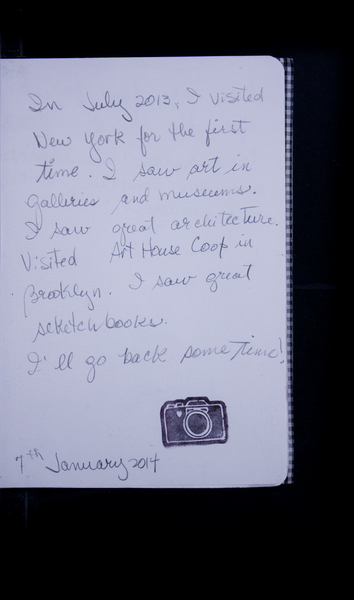 In July 2013, I visited
New York for the first
time. I saw art in
galleries and museums.
I saw great architecture.
Visited Art House Coop in
Brooklyn. I saw great
scketchbooks.
I'll go back some time!
7th January 2014